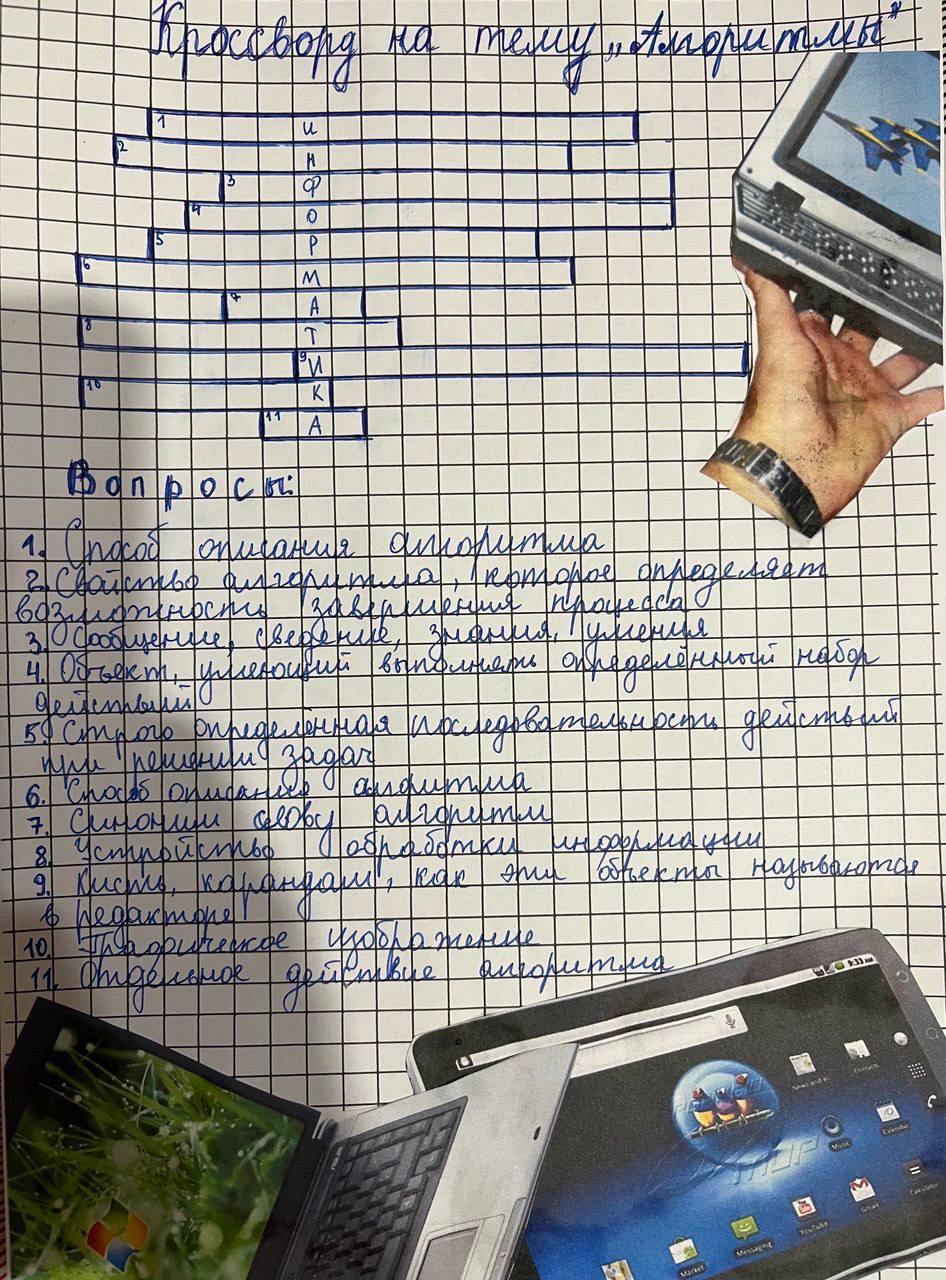 Кроссворд на тему „Алгоритмы"
1 И
2 Н
3 Ф
4 О
5 Р
6 М
7 А
8 Т
9 И
10 К
11 А
Вопросы:
1. Способ описания алгоритма
2. Свойство алгоритма, которое определяет
возможность завершения процесса
3. Сообщение, сведение, знания, умения
4. Объект, умеющий выполнять определённый набор
действий
5. Строго определённая последовательность действий
при решении задач
6. Способ описание алгоритма
7. Синоним слову алгоритм
8. Устройство обработки информации
9. Кисть, карандаш, как эти объекты называются
в редакторе
10. Графическое изображение
11. Отдельное действие алгоритма
9:33 AM
Music
Calendar
Calculator
Gmail
YouTube
Messaging
Market